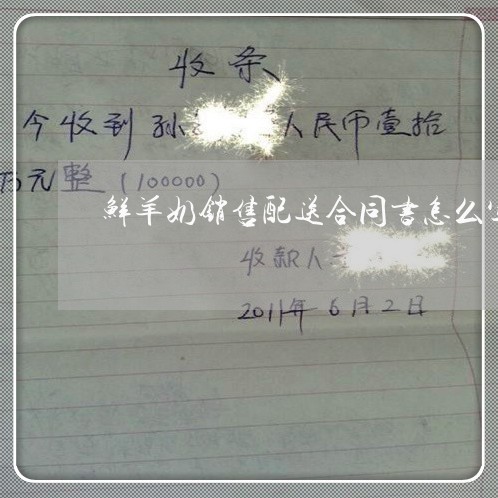 收条
今收到孙 人民币壹拾
万元整(100000)
鲜羊奶销售配送合同书怎么
收款人
2011年6月2日